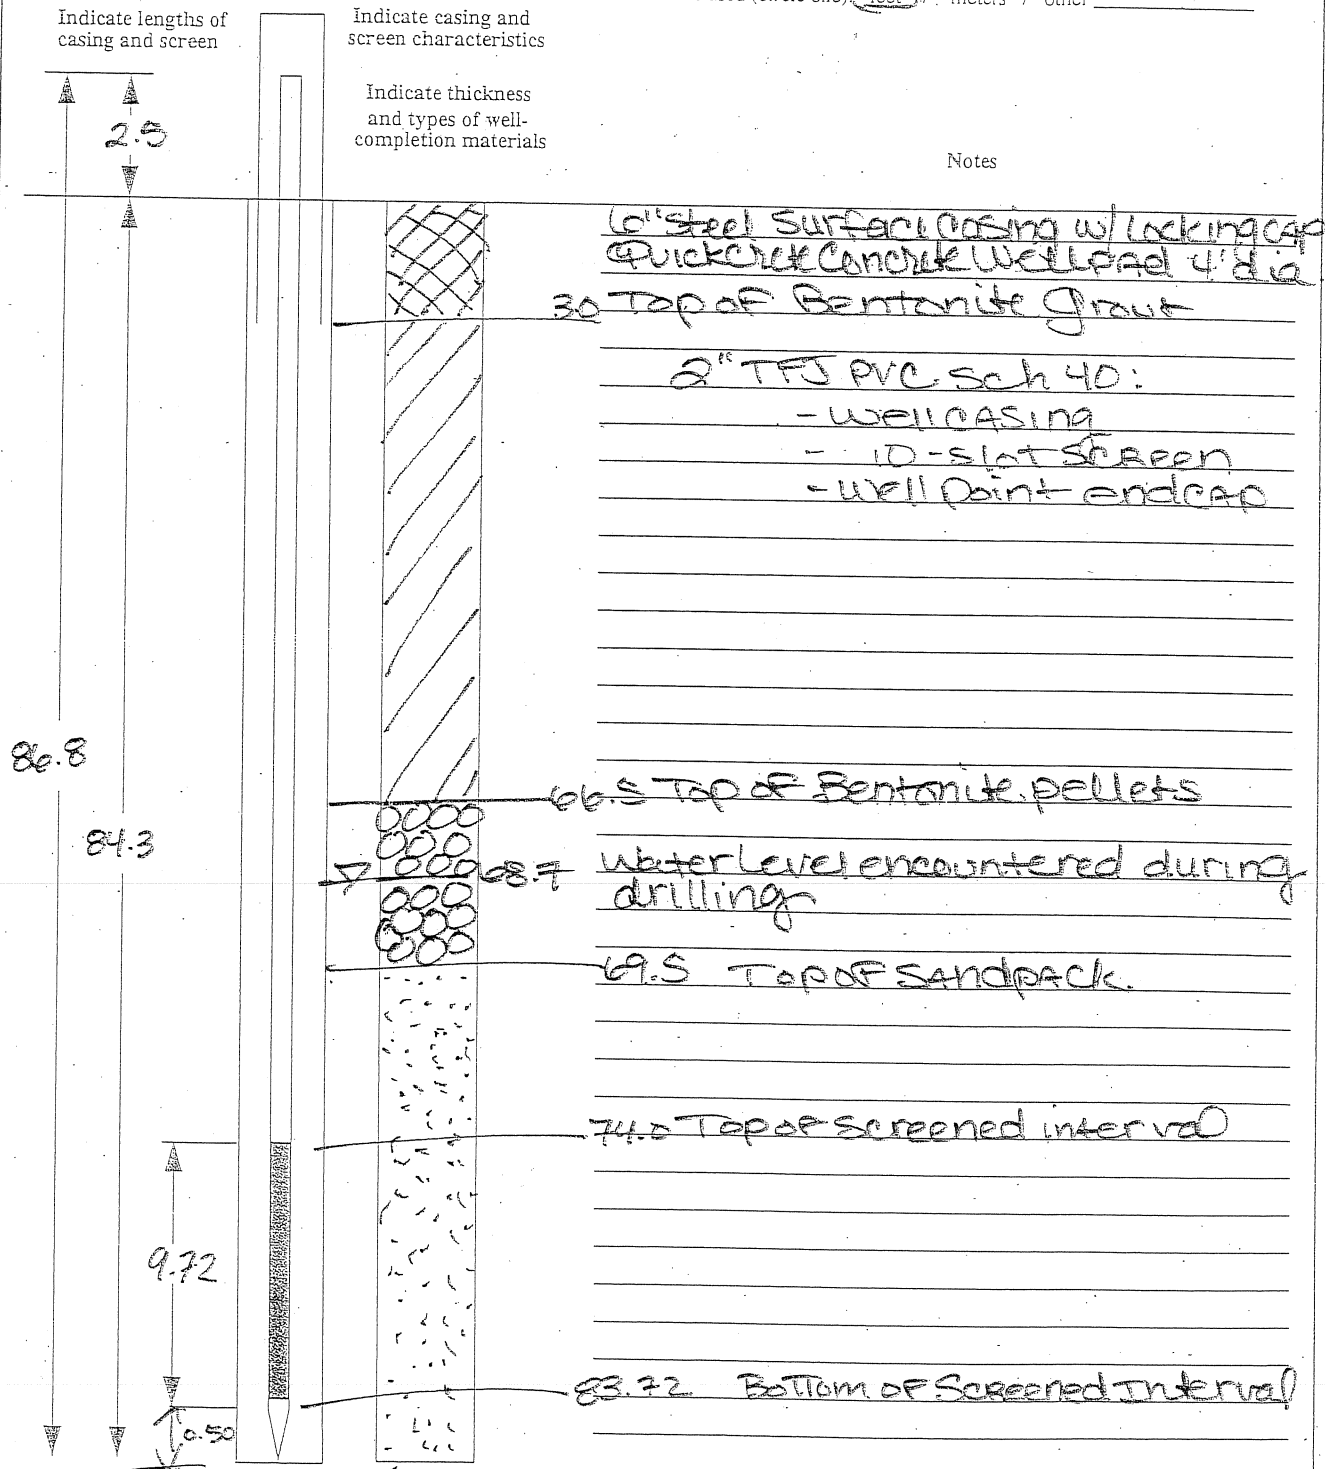 Indicate lengths of
casing and screen
Indicate casing and
screen characteristics
feet / meters / other
Indicate thickness
and types of well-
completion materials
Notes
2.5
6" Steel Surface Casing w/ Locking cap
Quickcrete Concrete Well Pad 4' dia
3.0 Top of Bentonite Grout
2" TFJ PVC Sch 40:
- Well casing
- 10-slot Screen
- Well Point endcap
86.8
84.3
66.5 Top of Bentonite pellets
68.7 Water Level encountered during
drilling
69.5 Top of Sandpack.
74.0 Top of Screened interval
9.72
83.72 Bottom of Screened Interval
0.50